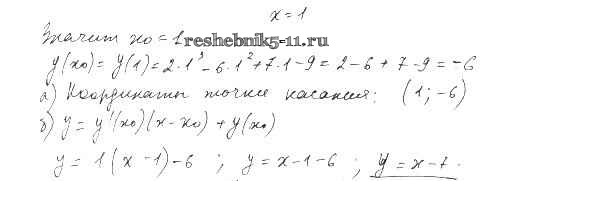 x = 1
Значит x₀ = 1
reshebnik5-11.ru
y(x₀) = y(1) = 2·1³ - 6·1² + 7·1 - 9 = 2 - 6 + 7 - 9 = -6
а) Координаты точки касания: (1; -6)
б) y = y'(x₀)(x - x₀) + y(x₀)
y = 1(x - 1) - 6 ; y = x - 1 - 6 ; y = x - 7.